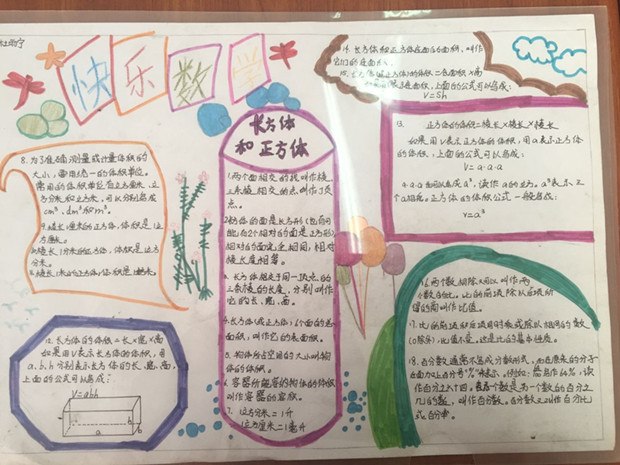 快乐数学
长方体
和正方体
1.两个面相交的线叫作棱,
三条棱相交的点叫作顶
点。
3.长方体相交于同一顶点的
三条棱的长度,分别叫作
它的长、宽、高。
4.长方体(或正方体)6个面的总
面积,叫作它的表面积。
5.物体所占空间的大小叫物
体的体积。
6.容器所能容纳物体的体积
叫作容器的容积。
7.1立方分米=1升
1立方厘米=1毫升
8.为了准确测量或计量体积的
大小,要用统一的体积单位。
常用的体积单位有立方厘米、立
方分米和立方米,可以分别写成
cm³、dm³和m³。
9.棱长1厘米的正方体,体积是1立
方厘米。
棱长1分米的正方体,体积是1立方
分米。
12.长方体的体积=长×宽×高
如果用V表示长方体的体积,用
a、b、h分别表示长方体的长、宽、高,
上面的公式可以写成:
V=abh
h
b
a
13.正方体的体积=棱长×棱长×棱长
如果用V表示正方体的体积,用a表示正方体
的棱长,上面的公式可以写成:
V=a·a·a
a·a·a可以写成a³,读作a的立方。a³表示3
个a相乘。正方体的体积公式一般写成:
V=a³
14.长方体和正方体底面的面积,叫作
它们的底面积。
15.长方体(或正方体)的体积=底面积×高
上面的公式可以写成:
V=Sh
16.两个数相除又可以叫作两
个数的比。比的前项除以后项所
得的商叫作比值。
17.比的前项和后项同时乘或除以相同的数
(0除外),比值不变,这是比的基本性质。
18.百分数通常不写成分数形式,而在原来的分子
后面加上百分号“%”来表示。例如:
读作百分之六十四。表示一个数是另一个数的百分之
几的数,叫作百分数。百分数又叫作百分比
或百分率。